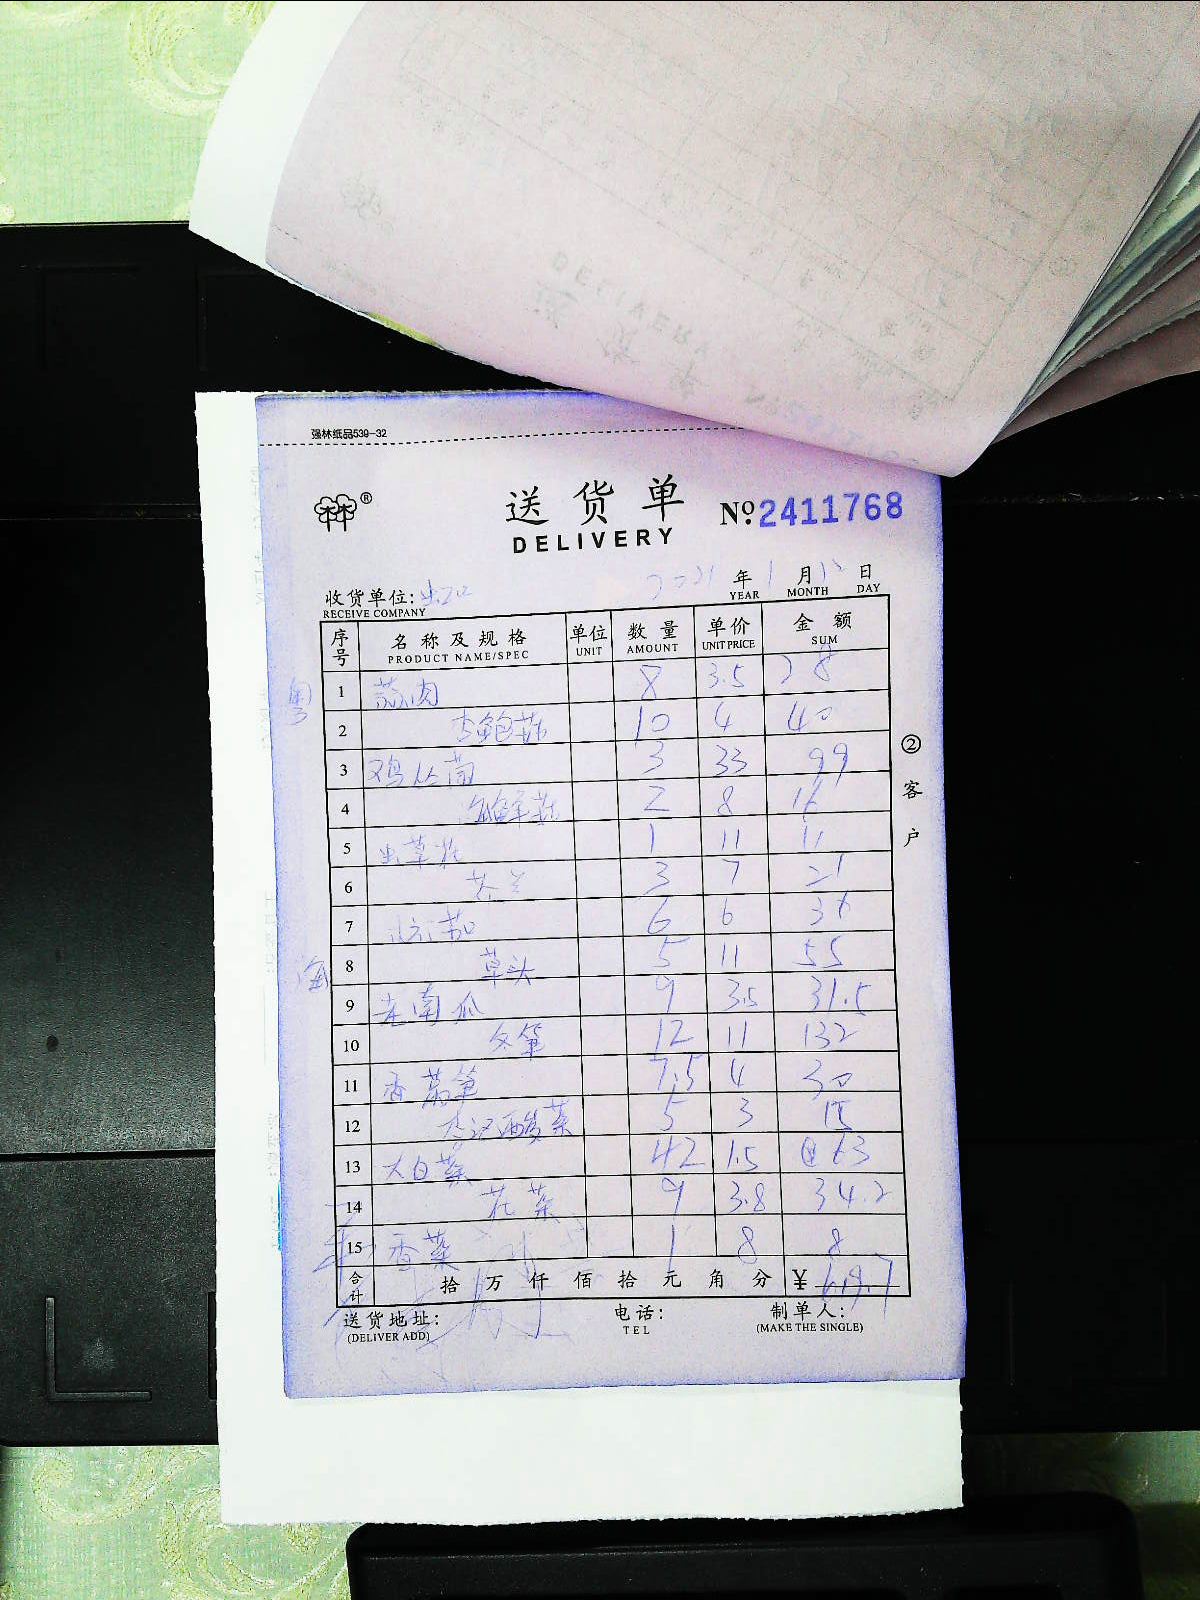 强林纸品539-32
®
送货单 №2411768
DELIVERY
收货单位: 2021年1月 日
RECEIVE COMPANY YEAR MONTH DAY
序号 名称及规格 单位 数量 单价 金额
PRODUCT NAME/SPEC UNIT AMOUNT UNIT PRICE SUM
粤
1 蒜肉 8 3.5 28
2 杏鲍菇 10 4 40
3 鸡丛菌 3 33 99
4 海鲜菇 2 8 16
5 虫草花 1 11 11
6 芥兰 3 7 21
7 6 6 36
海
8 草头 5 11 55
9 老南瓜 9 3.5 31.5
10 冬笋 12 11 132
11 香莴笋 7.5 4 30
12 李记酸菜 5 3 15
13 大白菜 42 1.5 63
14 花菜 9 3.8 34.2
15 香菜 1 8 8
合计 拾万仟佰拾元角分 ¥ 619.7
送货地址: 电话: 制单人:
(DELIVER ADD) TEL (MAKE THE SINGLE)
②客户